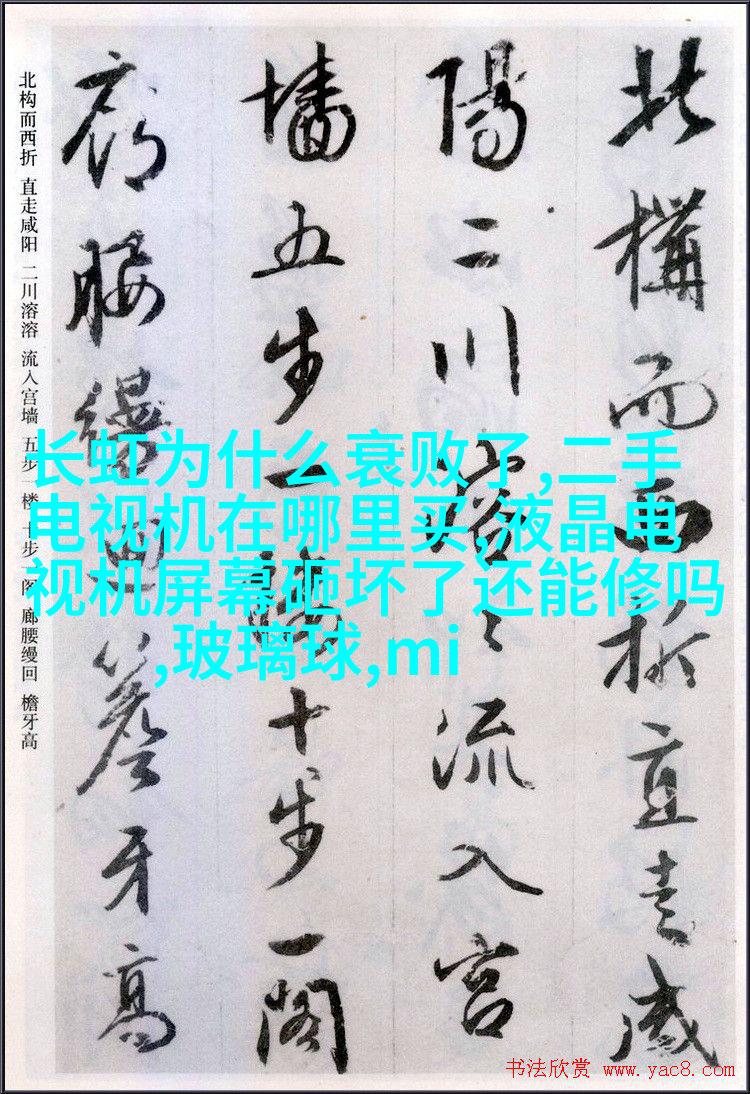 北構而西折直走咸
陽二川溶々流入宮
墻五步一樓十步一閣
廊腰縵迴簷牙高
北构而西折 直走咸阳 二川溶溶 流入宫墙 五步一楼 十步一阁 廊腰缦回 檐牙高
长虹为什么衰败了,二手
电视机在哪里买,液晶电
视机屏幕砸坏了还能修吗
,玻璃球,mi
书法欣赏 www.yac8.com